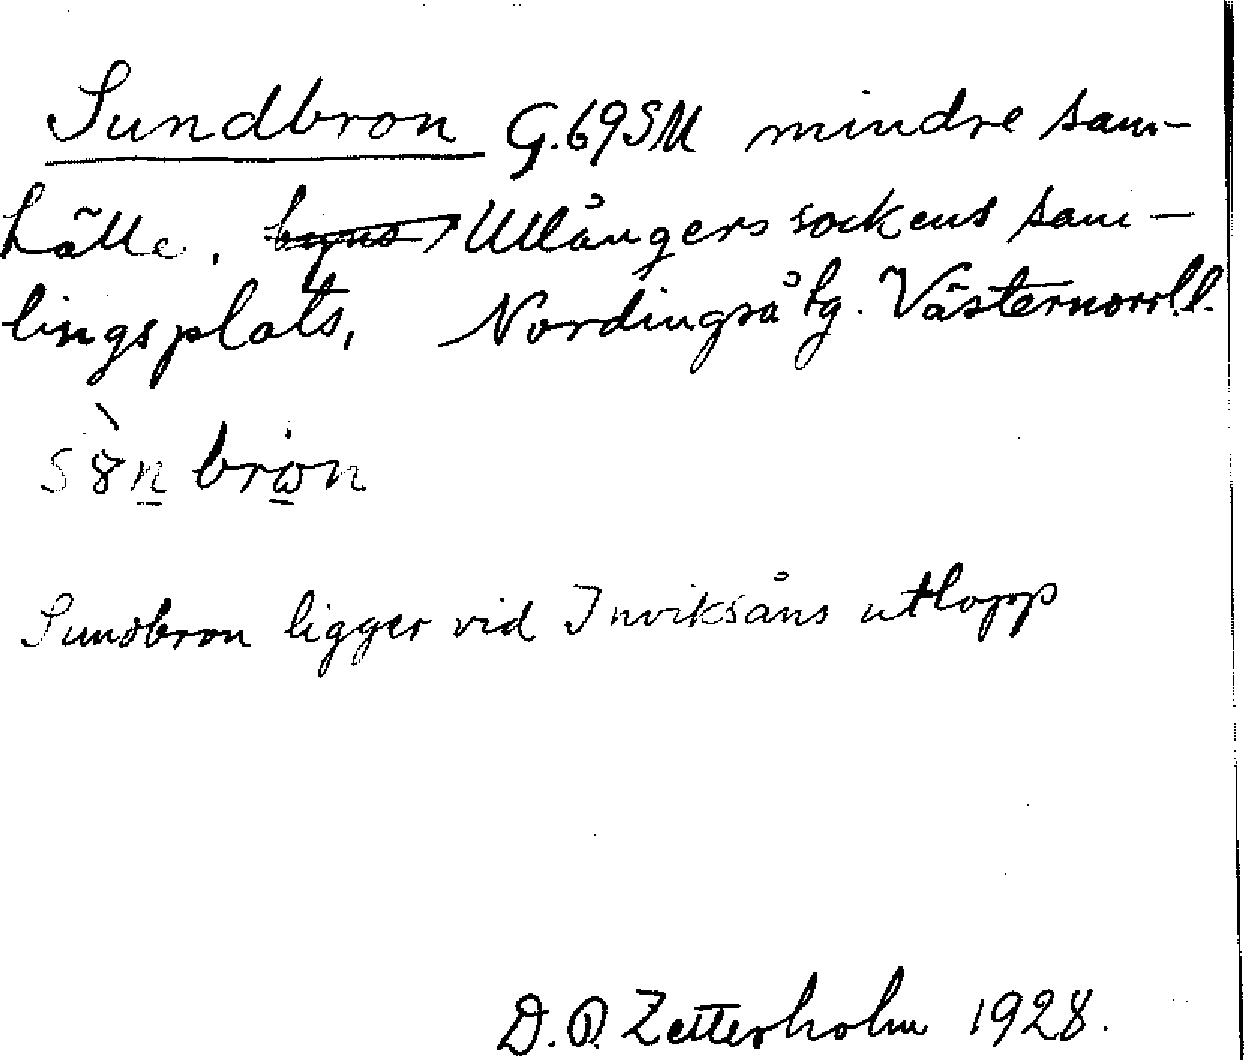 Sundbron G.69SM mindre sam-
hälle. byns Ullångers sockens sam-
lingsplats, Nordingrå tg. Västernorrl.l.
bron
Sundbron ligger vid Inviksåns utlopp
D.O. Zetterholm 1928.